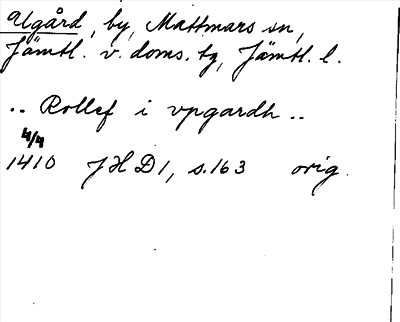 Utgård, by, Mattmars sn,
Jämtl. v. doms. tg, Jämtl. l.
.. Rollef i vpgardh ..
4/4
1410 JHD 1, s. 163 orig.